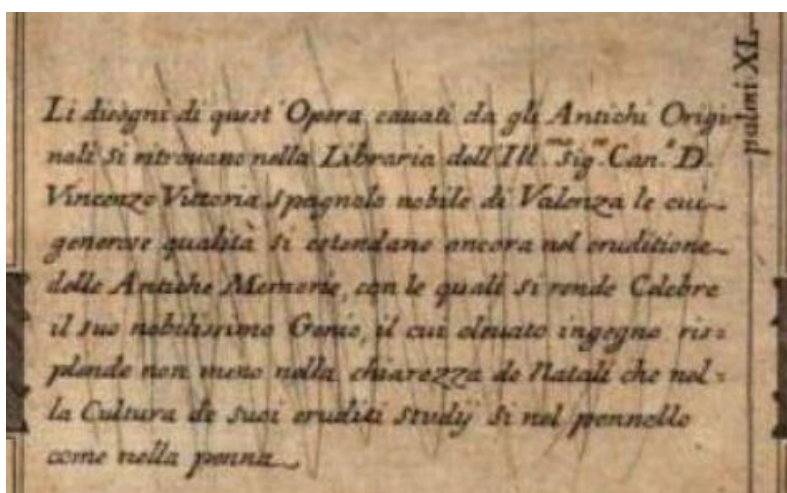 Li disegni di quest' Opera cavati da gli Antichi Origi:
nali si ritrouano nella Libraria dell' Ill.mo Sig.r Can.o D.
Vincenzo Vittoria spagnolo nobile di Valenza le cui
generose qualità si estendano ancora nel eruditione
delle Antiche Memorie, con le quali si rende Celebre
il suo nobilissimo Genio, il cui eleuato ingegno ris=
plende non meno nella chiarezza de Natali che nel=
la Cultura de suoi eruditi studij si nel pennello
come nella penna
palmi XL